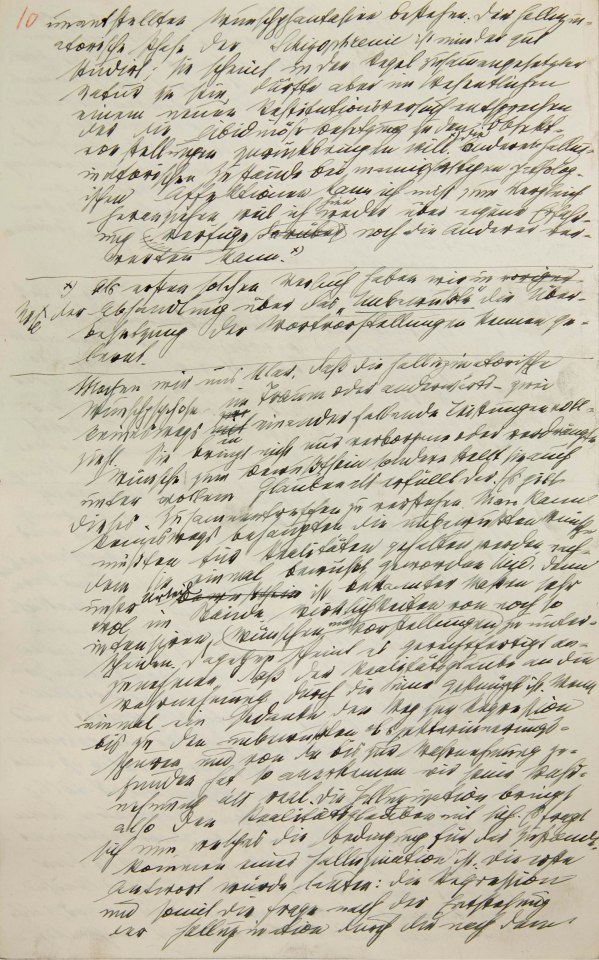 10 unentstellten Wunschphantasien bestehen. Die halluzin-
atorische Phase der Schizophrenie ist minder gut
studirt; sie scheint in der Regel zusammengesetzter
Natur zu sein, dürfte aber im Wesentlichen
einem neuen Restitutionsversuch entsprechen
der die libidinöse Besetzung zu den Objekt-
vorstellungen zurückbringen will. x) Die anderen halluz-
inatorischen Zustände bei mannigfaltigen patholog-
ischen Affektionen kann ich nicht zum Vergleich
heranziehen, weil ich hier weder über eigene Erfahr-
ung verfüge noch die Anderer ver-
werten kann. x)
x) Als ersten solchen Versuch haben wir in
Note der Abhandlung über das „Unbewußte“ die Über-
besetzung der Wortvorstellungen kennen ge-
lernt.
Machen wir uns klar, daß die halluzinatorische
Wunschpsychose im Traum oder anderwärts zwei
keineswegs in einander fallende Leistungen voll-
zieht. Sie bringt nicht nur verborgene oder verdrängte
Wünsche zum Bewußtsein sondern stellt sie auch
unter vollem Glauben als erfüllt dar. Es gilt
dieses Zusammentreffen zu verstehen. Man kann
keineswegs behaupten, die unbewußten Wünsche
müßten für Realitäten gehalten werden nach-
dem sie einmal bewußt geworden sind, denn
unser Urteil ist bekannter Maßen sehr
wol im Stande Wirklichkeiten von noch so
intensiven Wünschen und Vorstellungen zu unter-
scheiden. Dagegen scheint es gerechtfertigt an-
zunehmen, daß der Realitätsglaube an die
Wahrnehmung durch die Sinne geknüpft ist. Wenn
einmal ein Gedanke den Weg zur Regression
bis zu den unbewußten Objekterinnerungs-
spuren und von da bis zur Wahrnehmung ge-
funden hat, so anerkennen wir seine Wahr-
nehmung als real. Die Halluzination bringt
also den Realitätsglauben mit sich. Es fragt
sich nun welches die Bedingung für das Zustande-
kommen einer Halluzination ist. Die erste
Antwort würde lauten: Die Regression
und somit die Frage nach der Entstehung
der Halluzination durch die nach dem